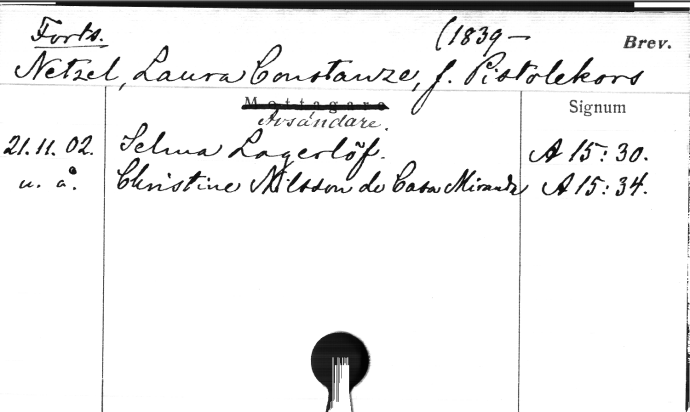 Forts. (1839— Brev.
Netzel, Laura Constanze, f. Pistolekors
Mottagare Signum
Avsändare.
21.11.02. Selma Lagerlöf. A 15:30.
u. å. Christine Nilsson de Casa Miranda A 15:34.